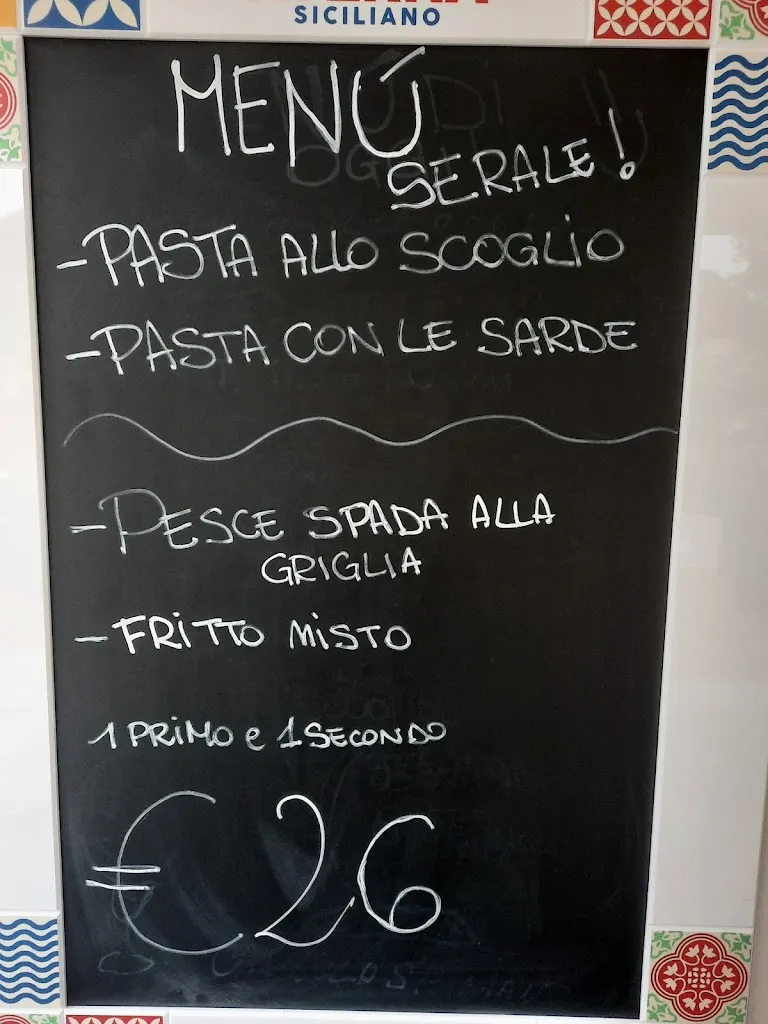 SICILIANO
MENÚ
SERALE!
- PASTA ALLO SCOGLIO
- PASTA CON LE SARDE
- PESCE SPADA ALLA
GRIGLIA
- FRITTO MISTO
1 PRIMO e 1 SECONDO
€26